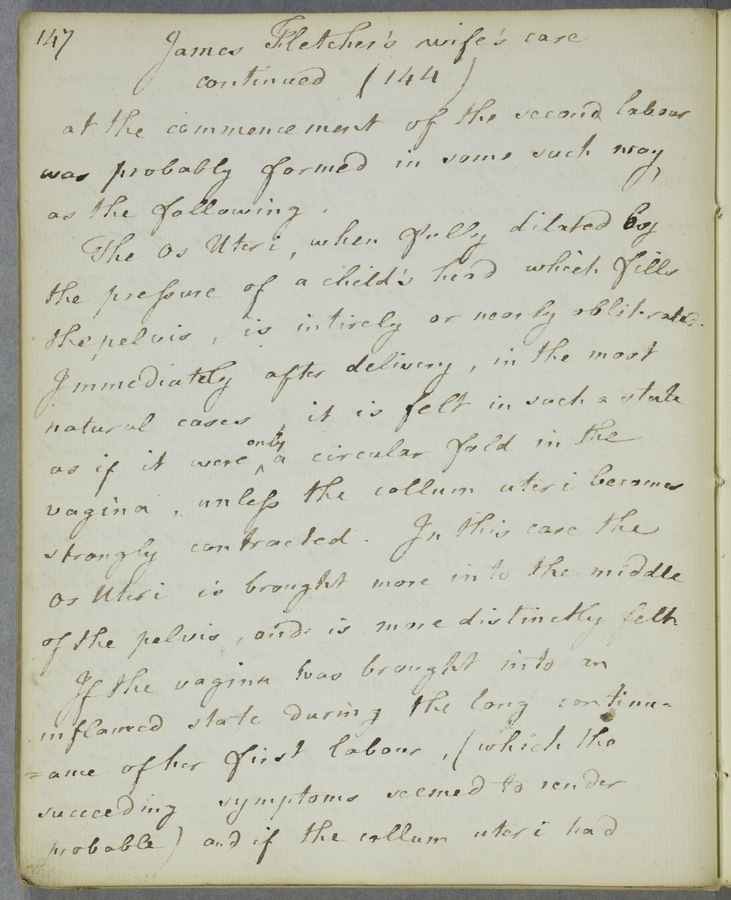 147
James Fletcher's wife's case
continued (144)
at the commencement of the second labour
was probably formed in some such way,
as the following.
The Os Uteri, when fully dilated by
the pressure of a child's head which fills
the pelvis, is intirely or nearly obliterated.
Immediately after delivery, in the most
natural cases, it is felt in such a state
as if it were only a circular fold in the
vagina, unless the collum uteri becomes
strongly contracted. In this case the
Os Uteri is brought more into the middle
of the pelvis, and is more distinctly felt.
If the vagina was brought into an
inflamed state during the long continu-
=ance of her first labour, (which the
succeeding symptoms seemed to render
probable) and if the collum uteri had